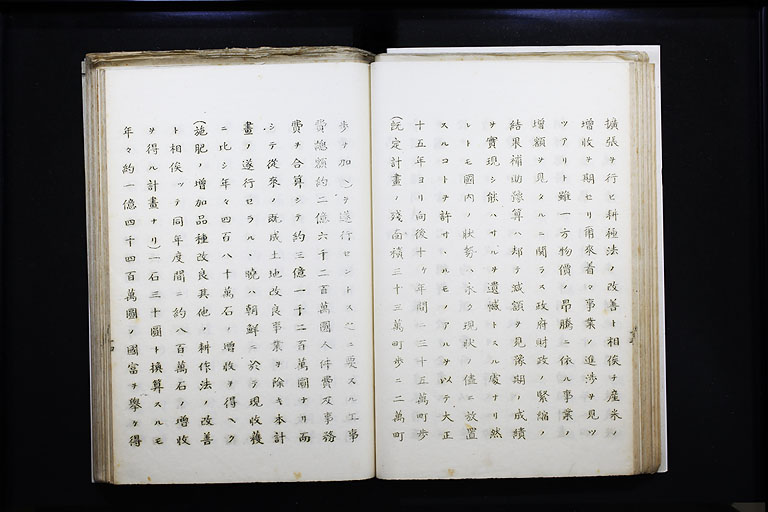 擴張ヲ行ヒ耕種法ノ改善ト相俟テ産米ノ
増收ヲ期セリ爾來着々事業ノ進渉ヲ見ツ
ツアリト雖一方物價ノ昂騰ニ依ル事業ノ
増額ヲ見タルニ関ラス政府財政ノ緊縮ノ
結果補助豫算ハ却テ減額ヲ見豫期ノ成績
ヲ實現シ能ハサルヲ遺憾トスル處ナリ然
レトモ國内ノ狀勢ハ永ク現狀ノ儘ニ放置
スルコトヲ許サヽルモノアルヲ以テ大正
十五年ヨリ向後十ケ年間ニ三十五萬町歩
(既定計畫ノ残面積三十三萬町歩ニ二萬町
歩ヲ加フ)ヲ遂行セントス之ニ要スル工事
費總額約二億六千二百萬圓人件費及事務
費ヲ合算シテ約三億一千二百萬圓ナリ而
シテ從來ノ既成土地改良事業ヲ除キ本計
畫ノ遂行セラルヽ曉ハ朝鮮ニ於テ現收穫
ニ比シ年々四百八十萬石ノ増收ヲ得ヘク
(施肥ノ増加品種改良其他ノ耕作法ノ改善
ト相俟ツテ同年度間ニ約八百萬石ノ増收
ヲ得ル計畫ナリ)一石三十圓ト換算スルモ
年々約一億四千四百萬圓ノ國富ヲ擧ケ得